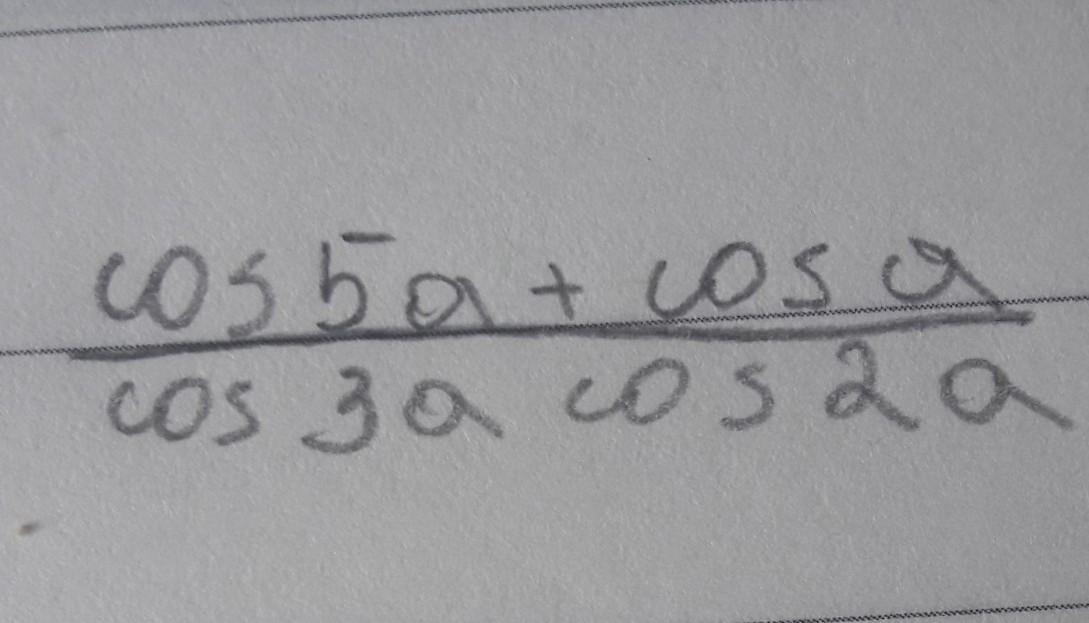 cos 5a + cos a
cos 3a cos 2a